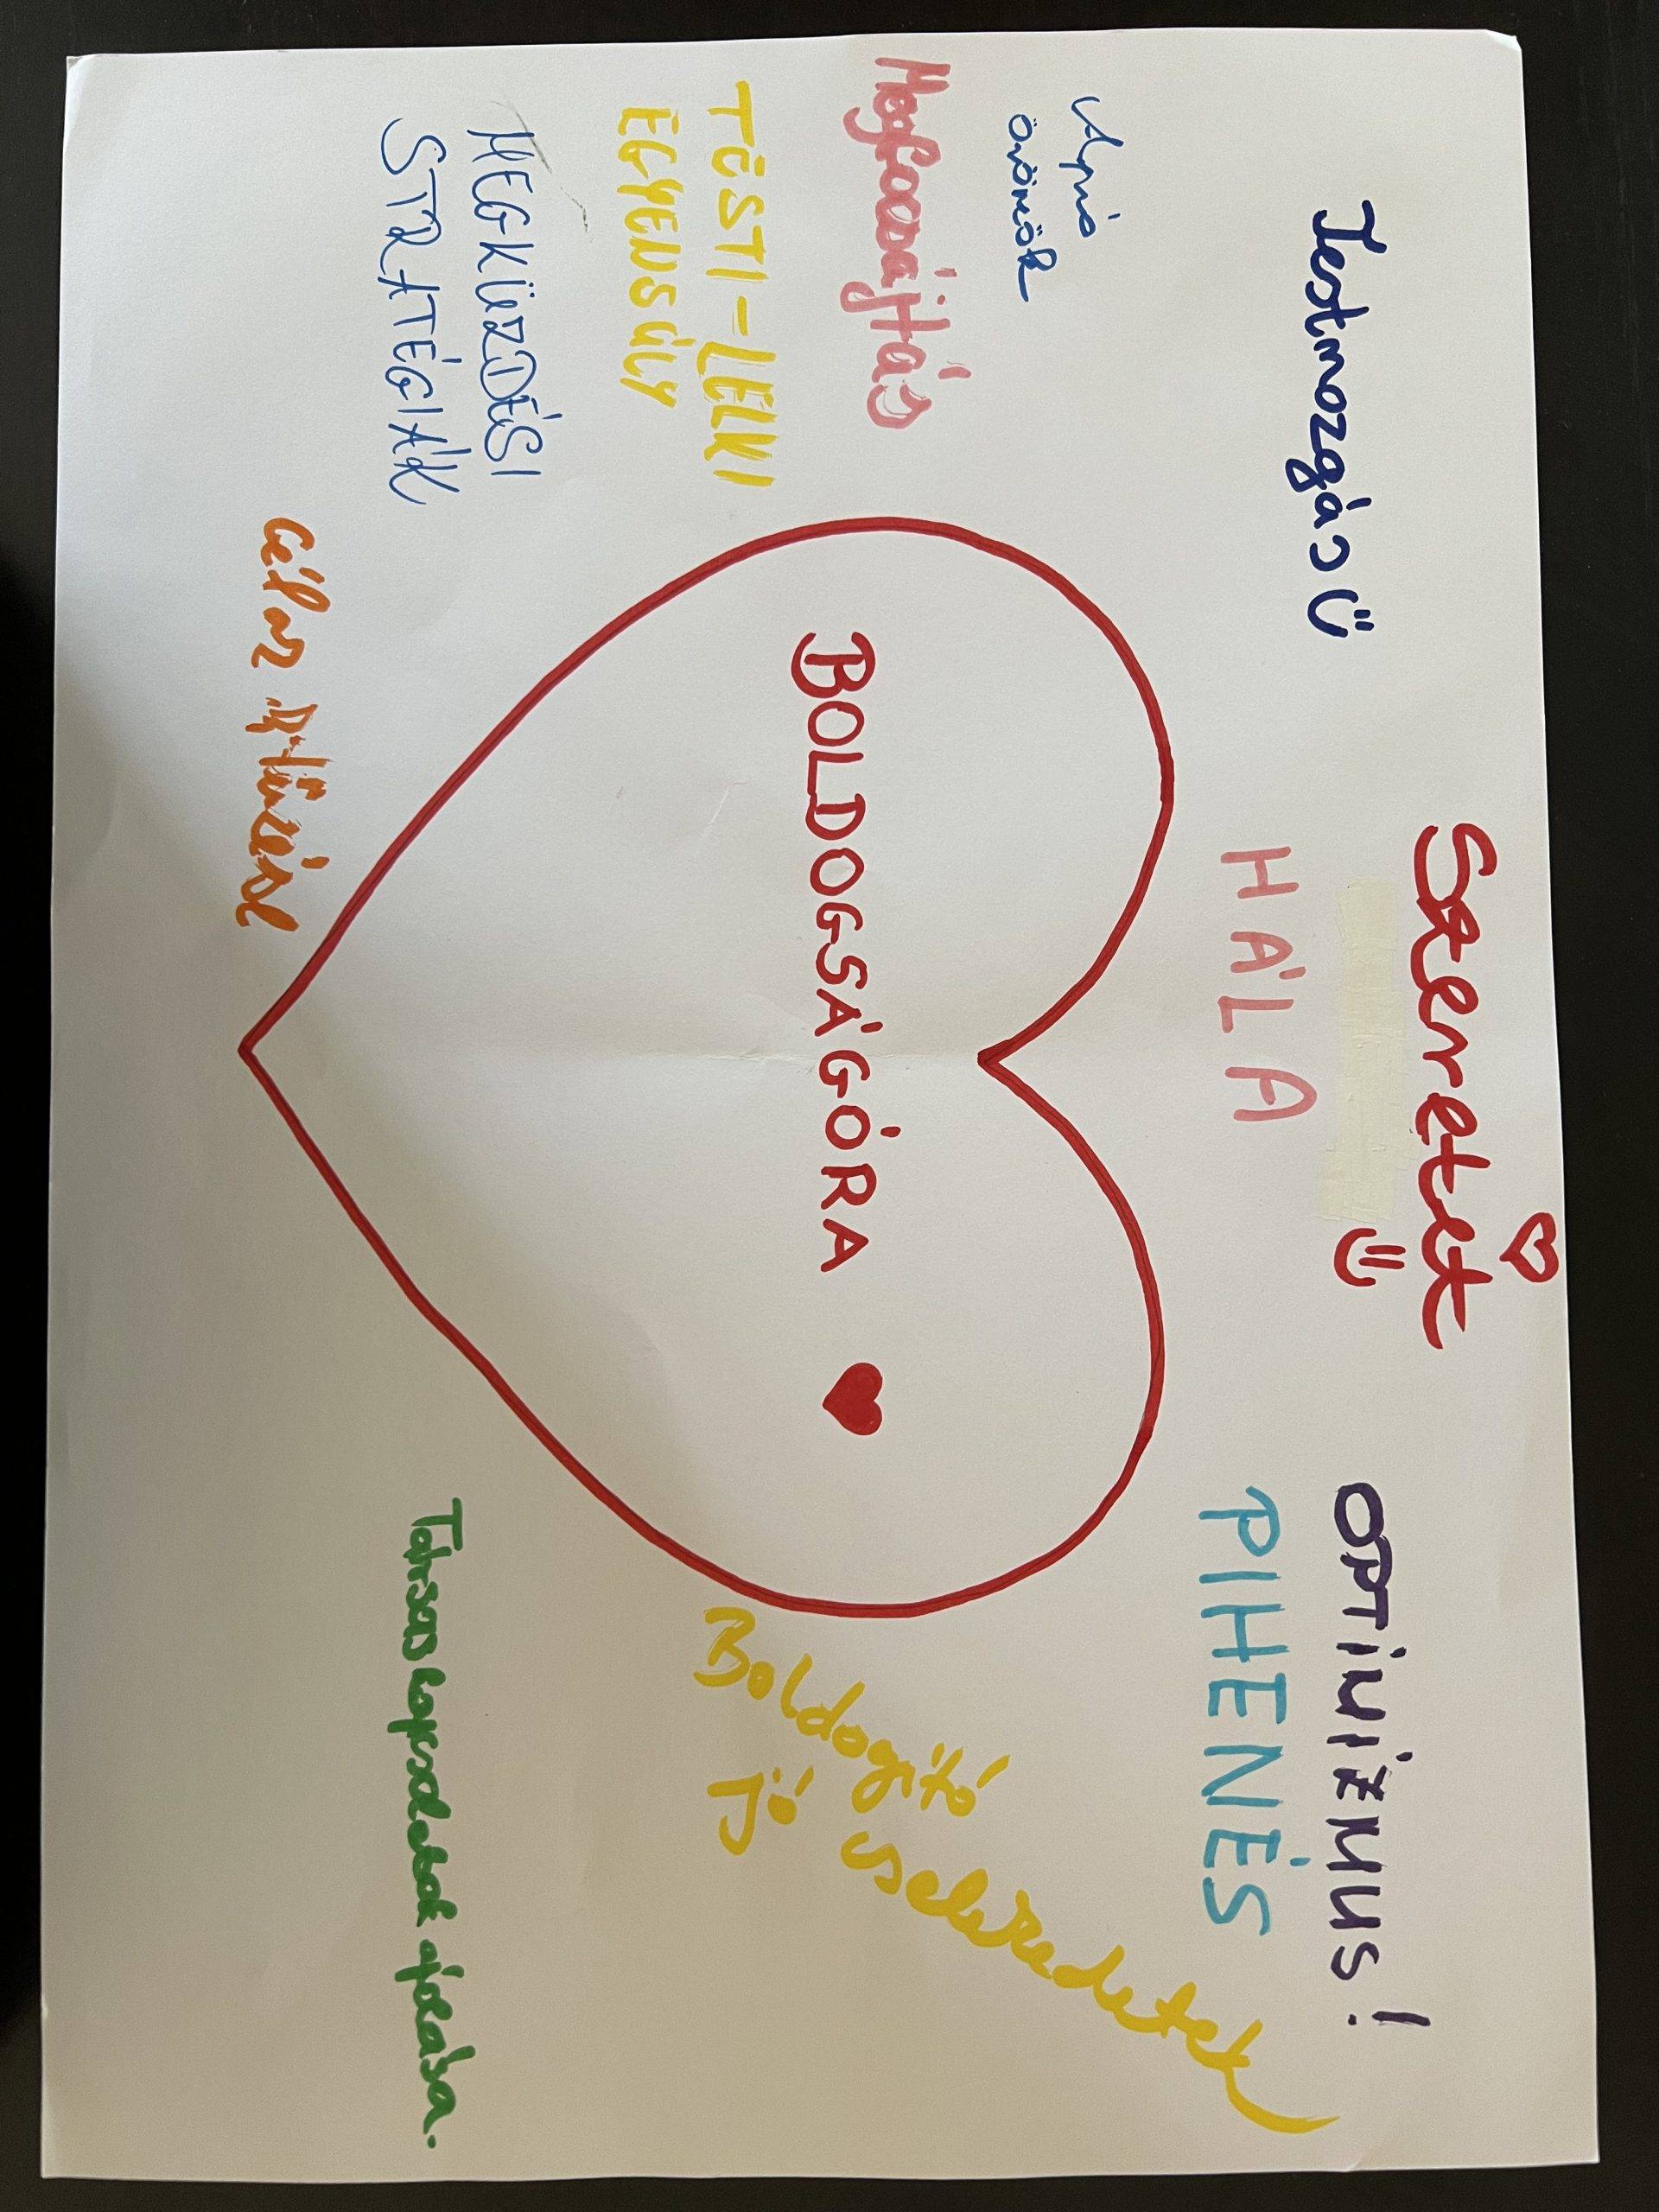 Szeretet
Testmozgás
OPTIMIZMUS!
HÁLA
PIHENÉS
Apró
örömök
Megbocsájtás
BOLDOGSÁGÓRA
Boldogító
jó cselekedetek
TESTI-LELKI
EGYENSÚLY
MEGKÜZDÉSI
STRATÉGIÁK
Célok kitűzése
Társas kapcsolatok ápolása.